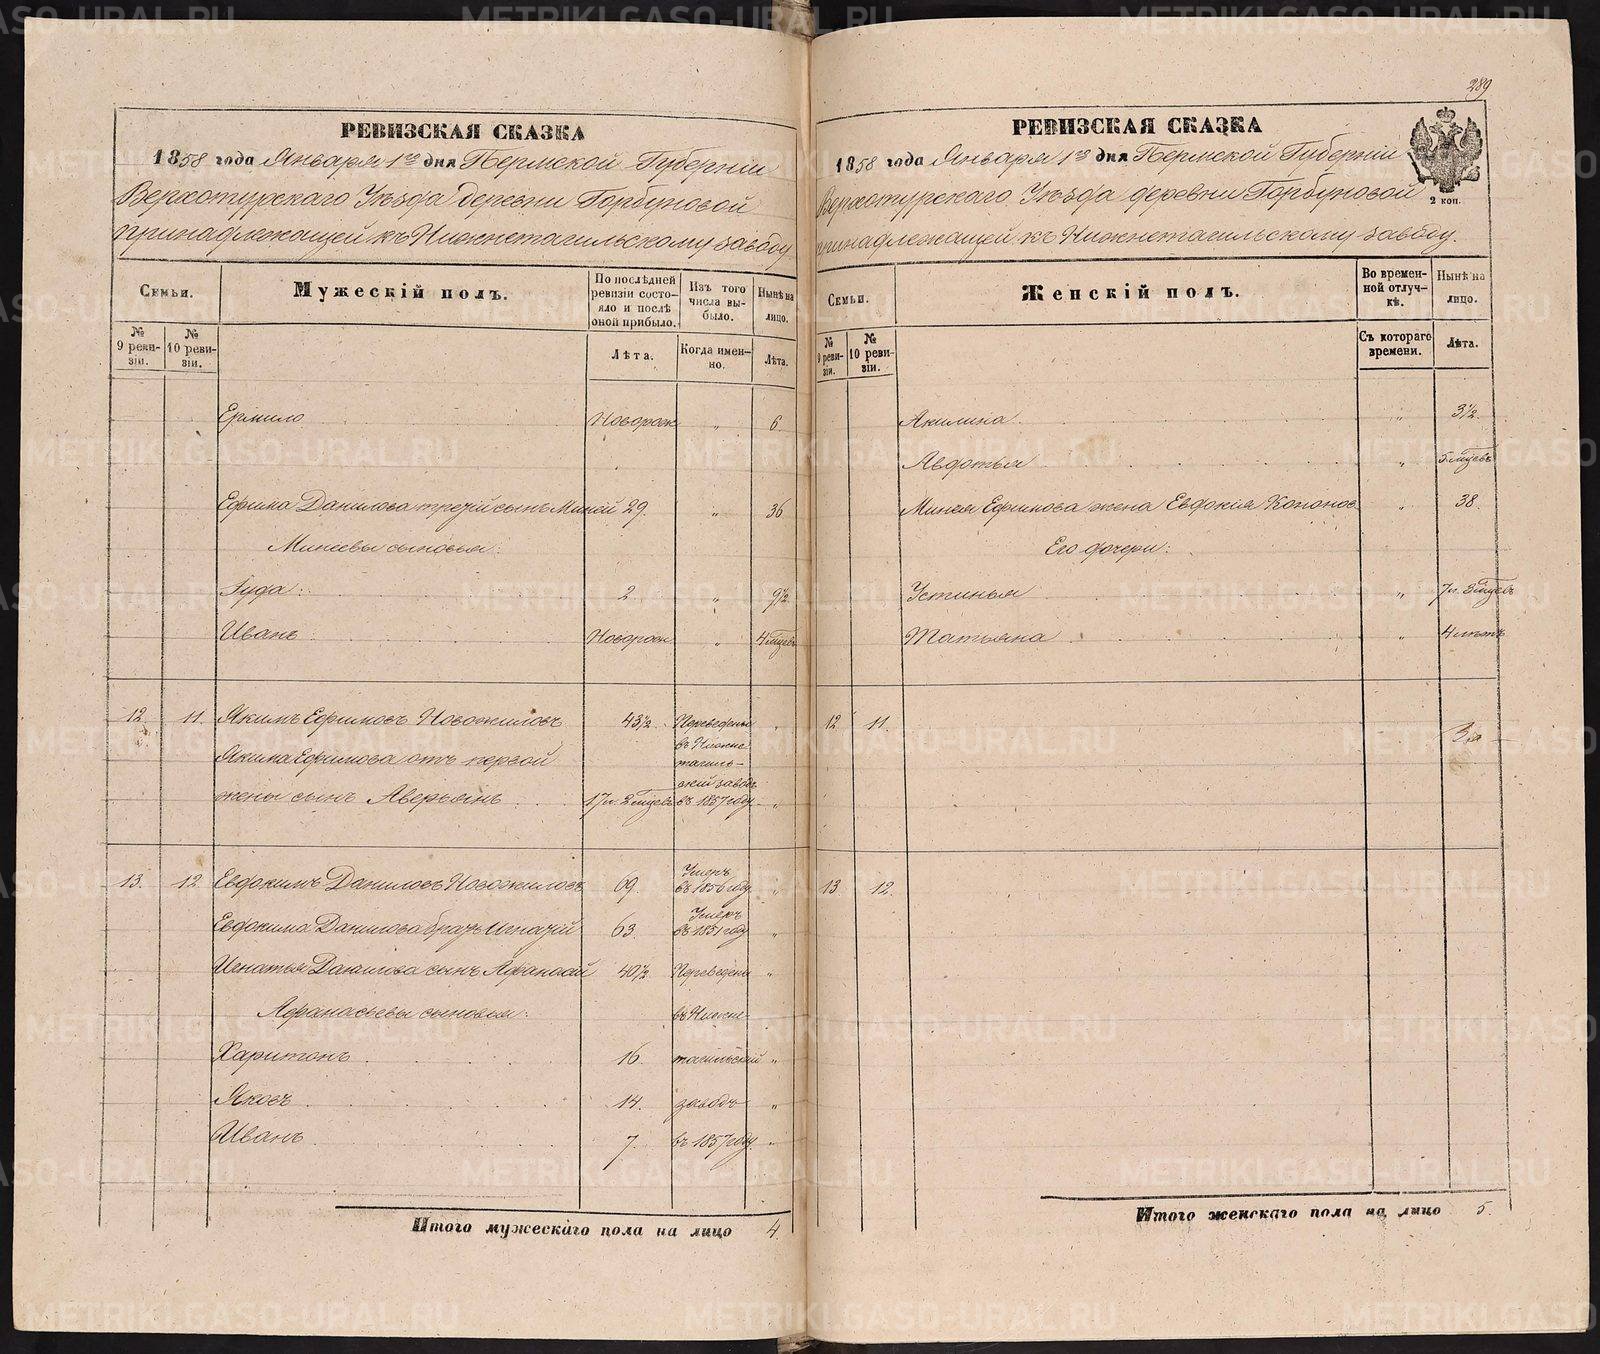 289
РЕВИЗСКАЯ СКАЗКА
1858 года Января 1го дня Пермской Губернiи
Верхотурскаго Уѣзда Деревни Горбуновой
принадлежащей къ Нижнетагильскому заводу
Семьи.
Мужескiй полъ.
По послѣдней ревизiи состояло и послѣ оной прибыло.
Изъ того числа выбыло.
Нынѣ на лицо.
№ 9 ревизiи.
№ 10 ревизiи.
Лѣта.
Когда именно.
Лѣта.
Ермило Новорож „ 6
Ефима Данилова третiй сынъ Миней 29. „ 36
Минеевы сыновья:
Iуда: 2 „ 9½
Иванъ Новорож „ 4 мѣсяц
12. 11. Якимъ Ефимовъ Новожиловъ 43½ Переведены
въ Нижне
Якима Ефимова отъ первой тагиль-
скiй заводъ
жены сынъ Аверьянъ 17 л. 2 мѣсяц въ 1857 году „
13. 12. Евдокимъ Даниловъ Новожиловъ 69. Умеръ въ 1856 году „
Евдокима Данилова братъ Игнатiй 63. Умеръ въ 1851 году „
Игнатья Данилова сынъ Афанасiй 40½ Переведены „
Афанасьевы сыновья: въ Нижне-
Харитонъ 16. тагильскiй „
Яковъ 14. заводъ „
Иванъ 7. въ 1857 году „
Итого мужескаго пола на лицо 4.
РЕВИЗСКАЯ СКАЗКА
1858 года Января 1го дня Пермской Губернiи
Верхотурскаго Уѣзда деревни Горбуновой
2 коп.
принадлежащей къ Нижнетагильскому заводу.
Семьи.
Женскiй полъ.
Во временной отлучкѣ.
Нынѣ на лицо.
№ 9 ревизiи.
№ 10 ревизiи.
Съ котораго времени.
Лѣта.
Акилина „ 3½
Авдотья „ 5 мѣсяцевъ
Минея Ефимова жена Евдокiя Кононов „ 38.
Его дочери:
Устинья „ 7 л. 3 мѣсяцев
Татьяна „ 4 лѣтъ
12 11.
13 12.
Итого женскаго пола на лицо 5.
METRIKI.GASO-URAL.RU